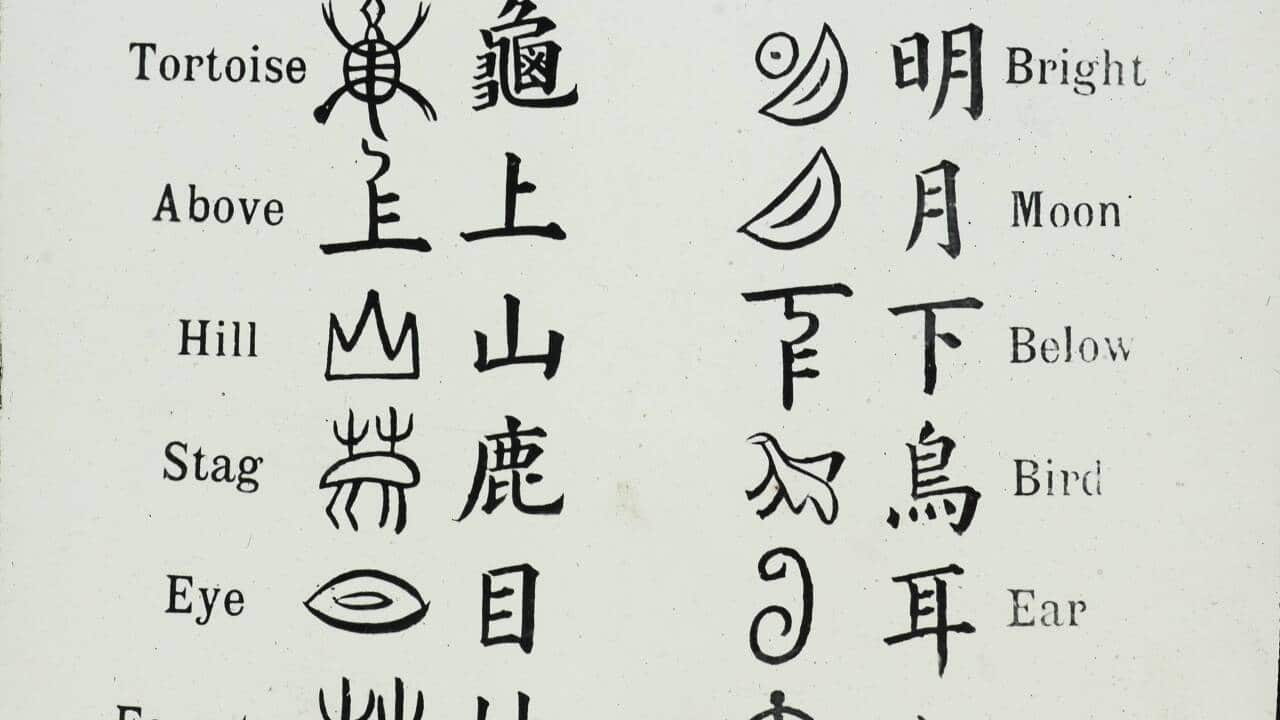 Tortoise 龜 明 Bright
Above 上 月 Moon
Hill 山 下 Below
Stag 鹿 鳥 Bird
Eye 目 耳 Ear